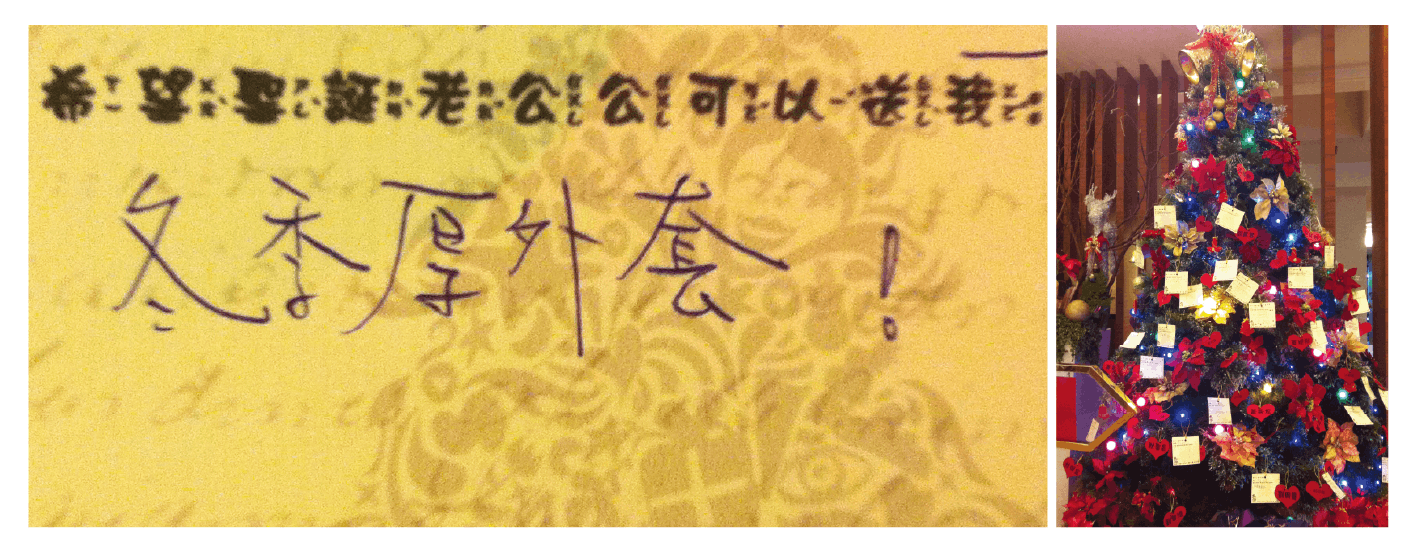 希望聖誕老公公可以送我
冬季厚外套！